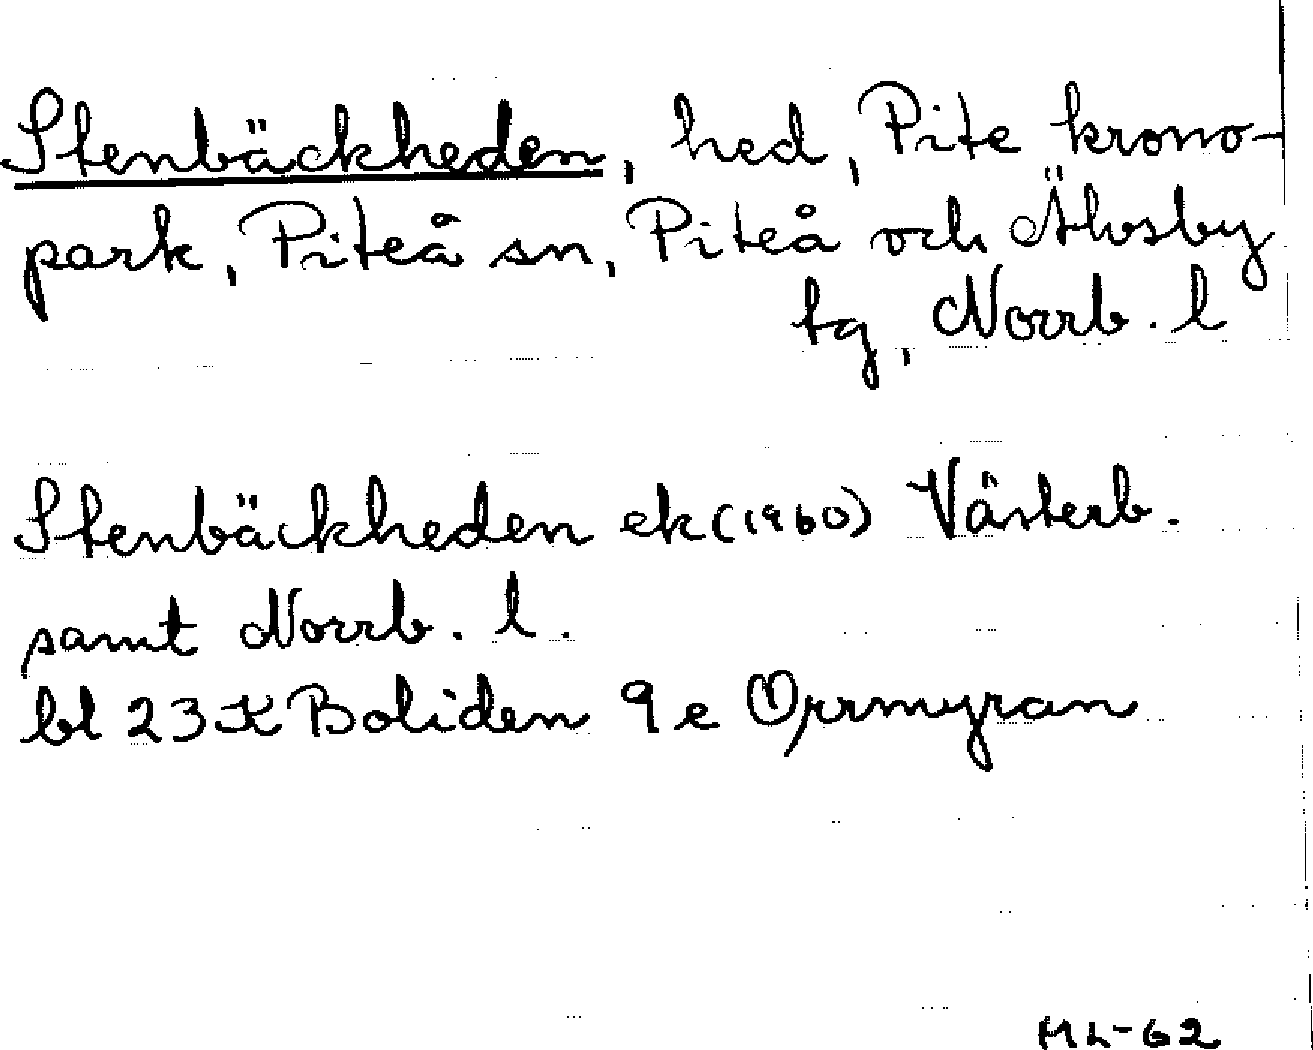 Stenbäckheden, hed, Pite krono-
park, Piteå sn, Piteå och Älvsby
tg, Norrb. l
Stenbäckheden ek (1960) Västerb.
samt Norrb. l.
bl 23 K Boliden 9 e Orrmyran
ML-62